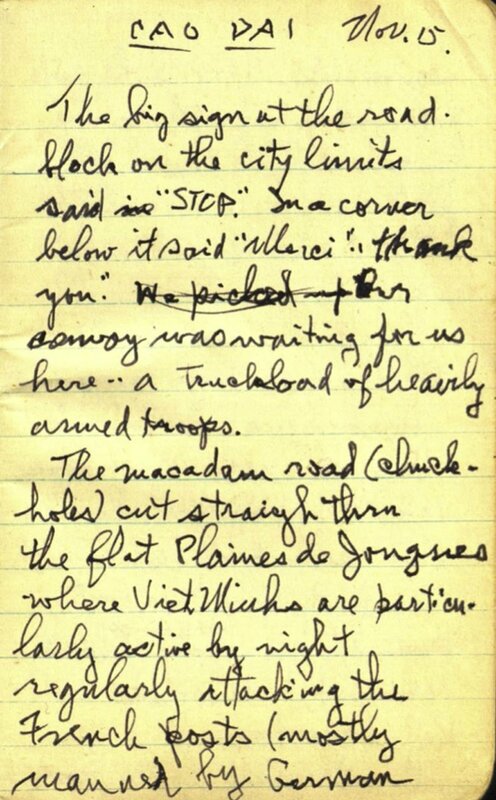 CAO DAI Nov. 15.
The big sign at the road-
block on the city limits
said in "STOP." In a corner
below it said "Merci".. thank
you." We picked up Our
convoy was waiting for us
here.. a truckload of heavily
armed troops.
The macadam road (chuck-
holes) cut straigh thru
the flat Plaines de Jongues
where Viet Minhs are particu-
larly active by night
regularly attacking the
French posts (mostly
manned by German